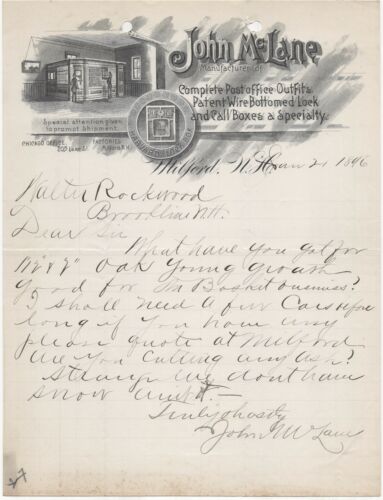 John McLane
Manufacturer of
Complete Post office Outfits.
Patent Wire Bottomed Lock
and Call Boxes a Specialty.
Special attention given
to prompt shipment.
CHICAGO OFFICE,
FACTORIES
Milford, N.H. Jan 21 1896
Walter Rockwood
Brookline N.H.
Dear Sir
What have you got for
Oak Young Growth
Good for the Basket business?
I shall need a few Cars before
long if you have any
please quote at Milford
Are you cutting any Ash?
Strange we dont have
snow
Truly
John McLane